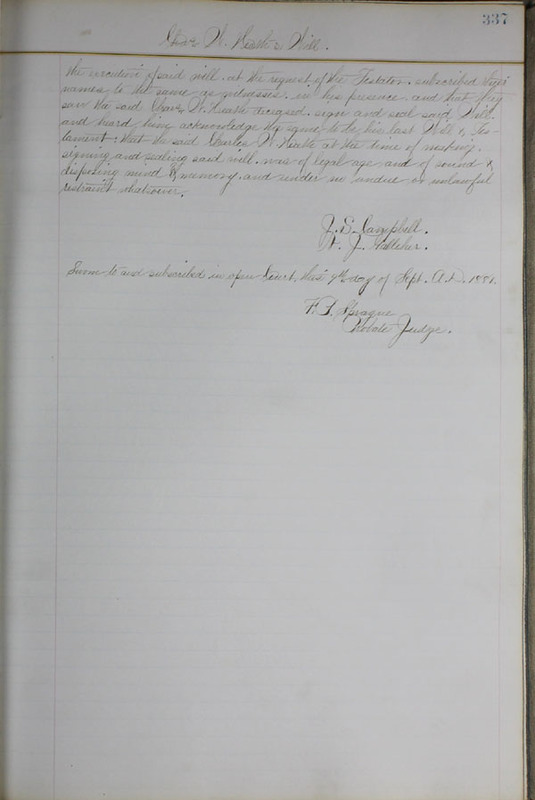 337
Chas. W. Heath's Will.
the execution of said will, at the request of the Testator, subscribed their
names to the same as witnesses, in his presence, and that they
saw the said Chas. W. Heath deceased, sign and seal said Will,
and heard him acknowledge the same to be his last Will & Tes-
tament: that the said Charles W. Heath at the time of making,
signing and sealing said will, was of legal age and of sound &
disposing mind & memory, and under no undue or unlawful
restraint whatsoever.
J. E. Campbell.
J. Galleher.
Sworn to and subscribed in open Court, this 9th day of Sept. A.D.
F. D. Sprague
Probate Judge.